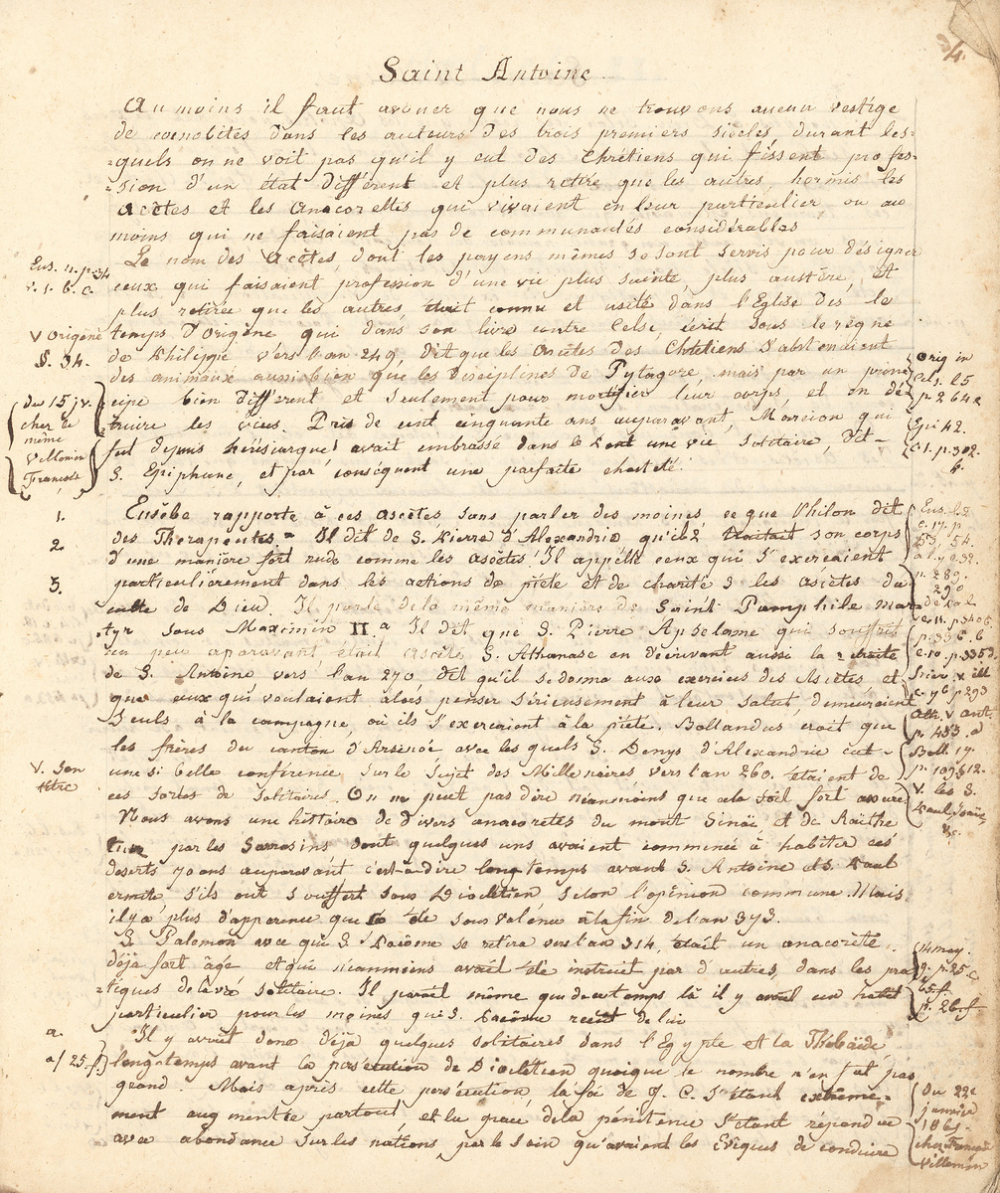 4.
Saint Antoine
Au moins il faut avouer que nous ne trouvons aucun vestige
de coenobites dans les auteurs des trois premiers siècles, durant les=
=quels on ne voit pas qu'il y eut des Chrétiens qui fissent profes=
=sion d'un état différent et plus retiré que les autres, hormis les
Acètes et les Anacorettes qui vivaient en leur particulier, ou au
moins qui ne faisaient pas de communautés considérables
Le nom des Acètes, dont les payens mêmes se sont servis pour désigner
Eus. n. p. 34
v. 1. 6. c.
ceux qui faisaient profession d'une vie plus sainte, plus austère, et
plus retirée que les autres, était connu et usité dans l'Eglise dès le
V Origene
§. 34.
temps d'Origène qui dans son livre contre Celse, écrit sous le règne
de Philippe vers l'an 249, dit que les Ascètes des Chrétiens s'abstenaient
des animaux aussi bien que les disciplines de Pytagore, mais par un prin=
cipe bien différent et seulement pour mortifier leur corps, et en dé
truire les vices. Près de cent cinquante ans auparavant, Marcion qui
fut depuis hérésiarque avait embrassé dans le Pont une vie solitaire, dit
S. Epiphane, et par conséquent une parfaite chasteté.
Orig in
Cels. l5
p 264 c
Epi 42.
c1. p. 302.
b.
du 15 jv.
chez le
même
Villemin
François
1.
2.
3.
Eusèbe rapporte à ces ascètes sans parler des moines ce que Philon dit
des Therapeutes. Il dit de S. Pierre d'Alexandrie qu'il traitait son corps
d'une manière fort rude comme les ascètes. Il appelle ceux qui s'exercaient
particulièrement dans les actions de piété et de charité les ascètes du
culte de Dieu. Il parle de la même manière de Saint Pamphile mar
=tyr sous Maximin II. Il dit que S. Pierre Apselame qui souffrit
un peu aparavant était ascète S. Athanase en décrivant aussi la retraite
de S. Antoine vers l'an 270 dit qu'il se donna aux exercices des Ascètes et
que ceux qui voulaient alors penser sérieusement à leur salut, demeuraient
seuls à la campagne, où ils s'exercaient à la piété. Bollandus croit que
les frères du canton d'Arsenoé avec les quels S. Denys d'Alexandrie eut
une si belle conférence sur le sujet des Millenaires, vers l'an 260. étaient de
ces sortes de solitaires. On ne peut pas dire néanmoins que cela soit fort assuré
Eus. l.2
c. 17. p
53. 54.
p. 289.
290
p. 336
Hier. v. ill
p. 293
Ath. v. ant.
p. 453. a
Boll 17.
V. les S.
Paul, Joaïe,
&c.
V. son
titre
Nous avons une histoire de divers anacoretes du mont Sinaï et de Raithe
tuez par les Sarrasins dont quelques uns avaient commencé à habiter ces
deserts 70 ans auparavant c'est-à-dire longtemps avant S. Antoine et S. Paul
ermite, s'ils ont souffert sous Dioclétien selon l'opinion commune. Mais
il y a plus d'apparence que sous Valence à la fin de l'an 373.
S. Palemon avec qui S. Pacôme se retira vers l'an 314, était un anacorète
déjà fort âgé et qui néanmoins avait été instruit par d'autres, dans les pra
=tiques de la vie solitaire. Il paroît même que de ce temps là il y avait un habit
particulier pour les moines que S. Pacôme reçut de lui
14 may.
g. p. 25. c.
p. 26. f.
a.
a/ 25. f
Il y avait donc déjà quelques solitaires dans l'Egypte et la Thébaïde
longtemps avant la persécution de Dioclétien quoique le nombre n'en fut pas
grand. Mais après cette persécution, la foi de J. C. s'étant extrême=
ment augmentée partout, et la grace de la pénitence s'etant répandue
avec abondance sur les nations, par le soin qu'avaient les Evêques de conduire
Du 22e
janvier
1861.
chez François
Villemin